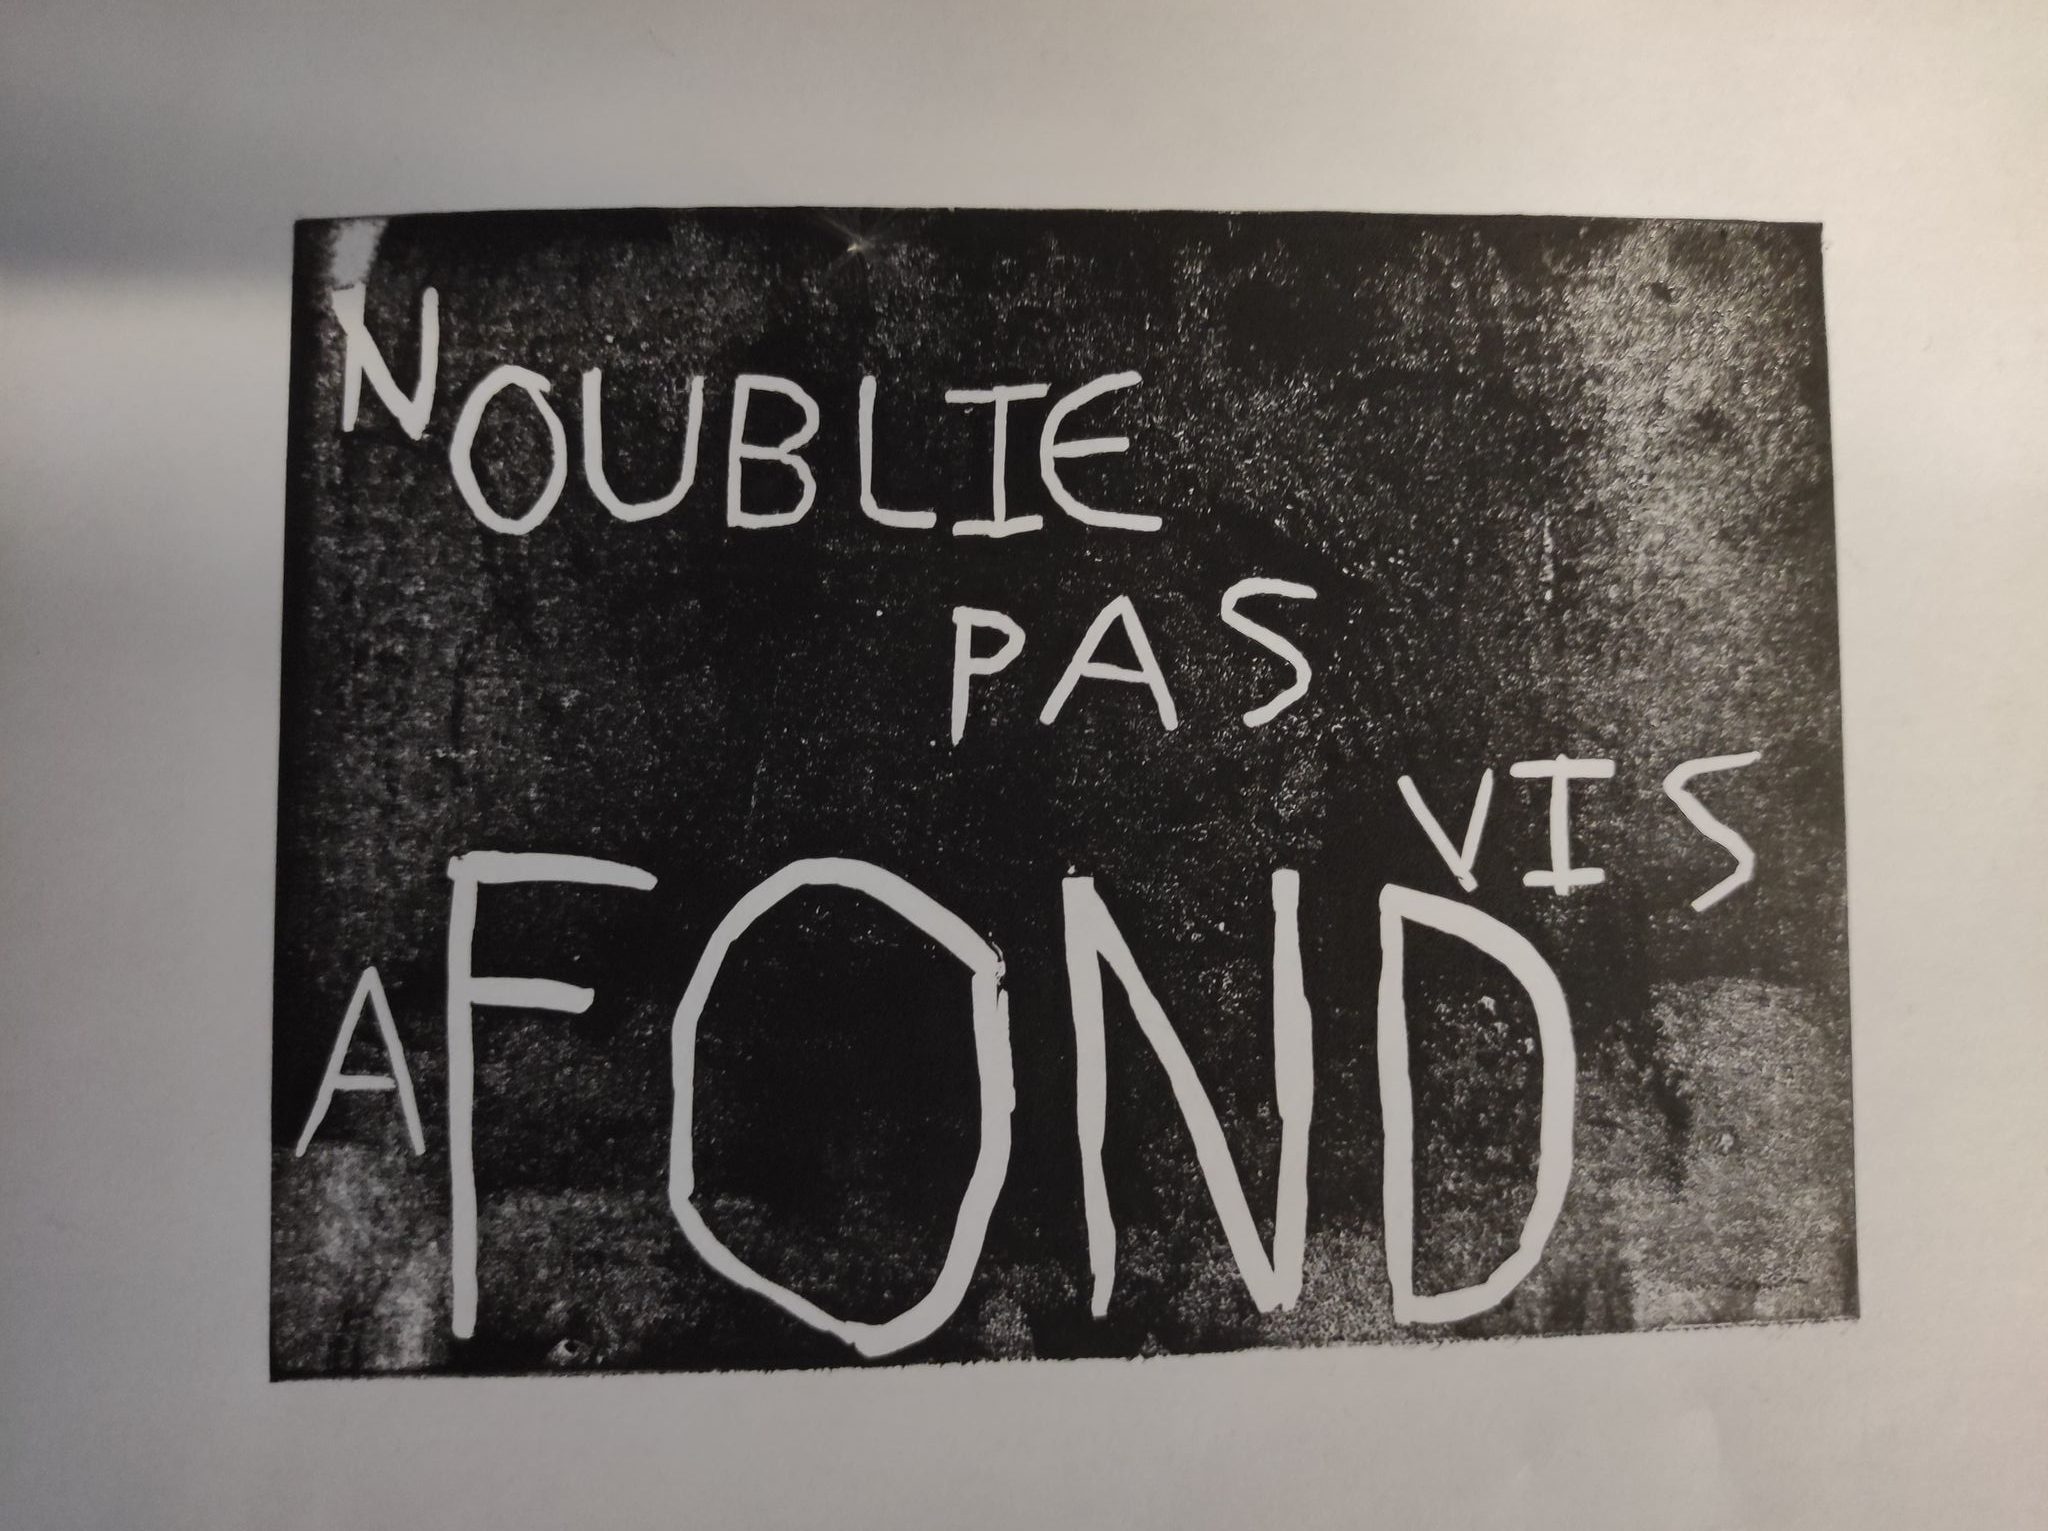 NOUBLIE
PAS
VIS
A FOND